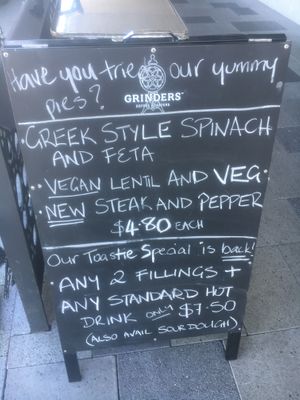 Have you trie our yummy
pies?
GRINDERS
COFFEE ROASTERS
GREEK STYLE SPINACH
AND FETA
VEGAN LENTIL AND VEG
NEW STEAK AND PEPPER
$4.80 EACH
Our Toastie Special is back!
ANY 2 FILLINGS +
ANY STANDARD HOT
DRINK ONLY $7.50
(ALSO AVAIL SOURDOUGH)